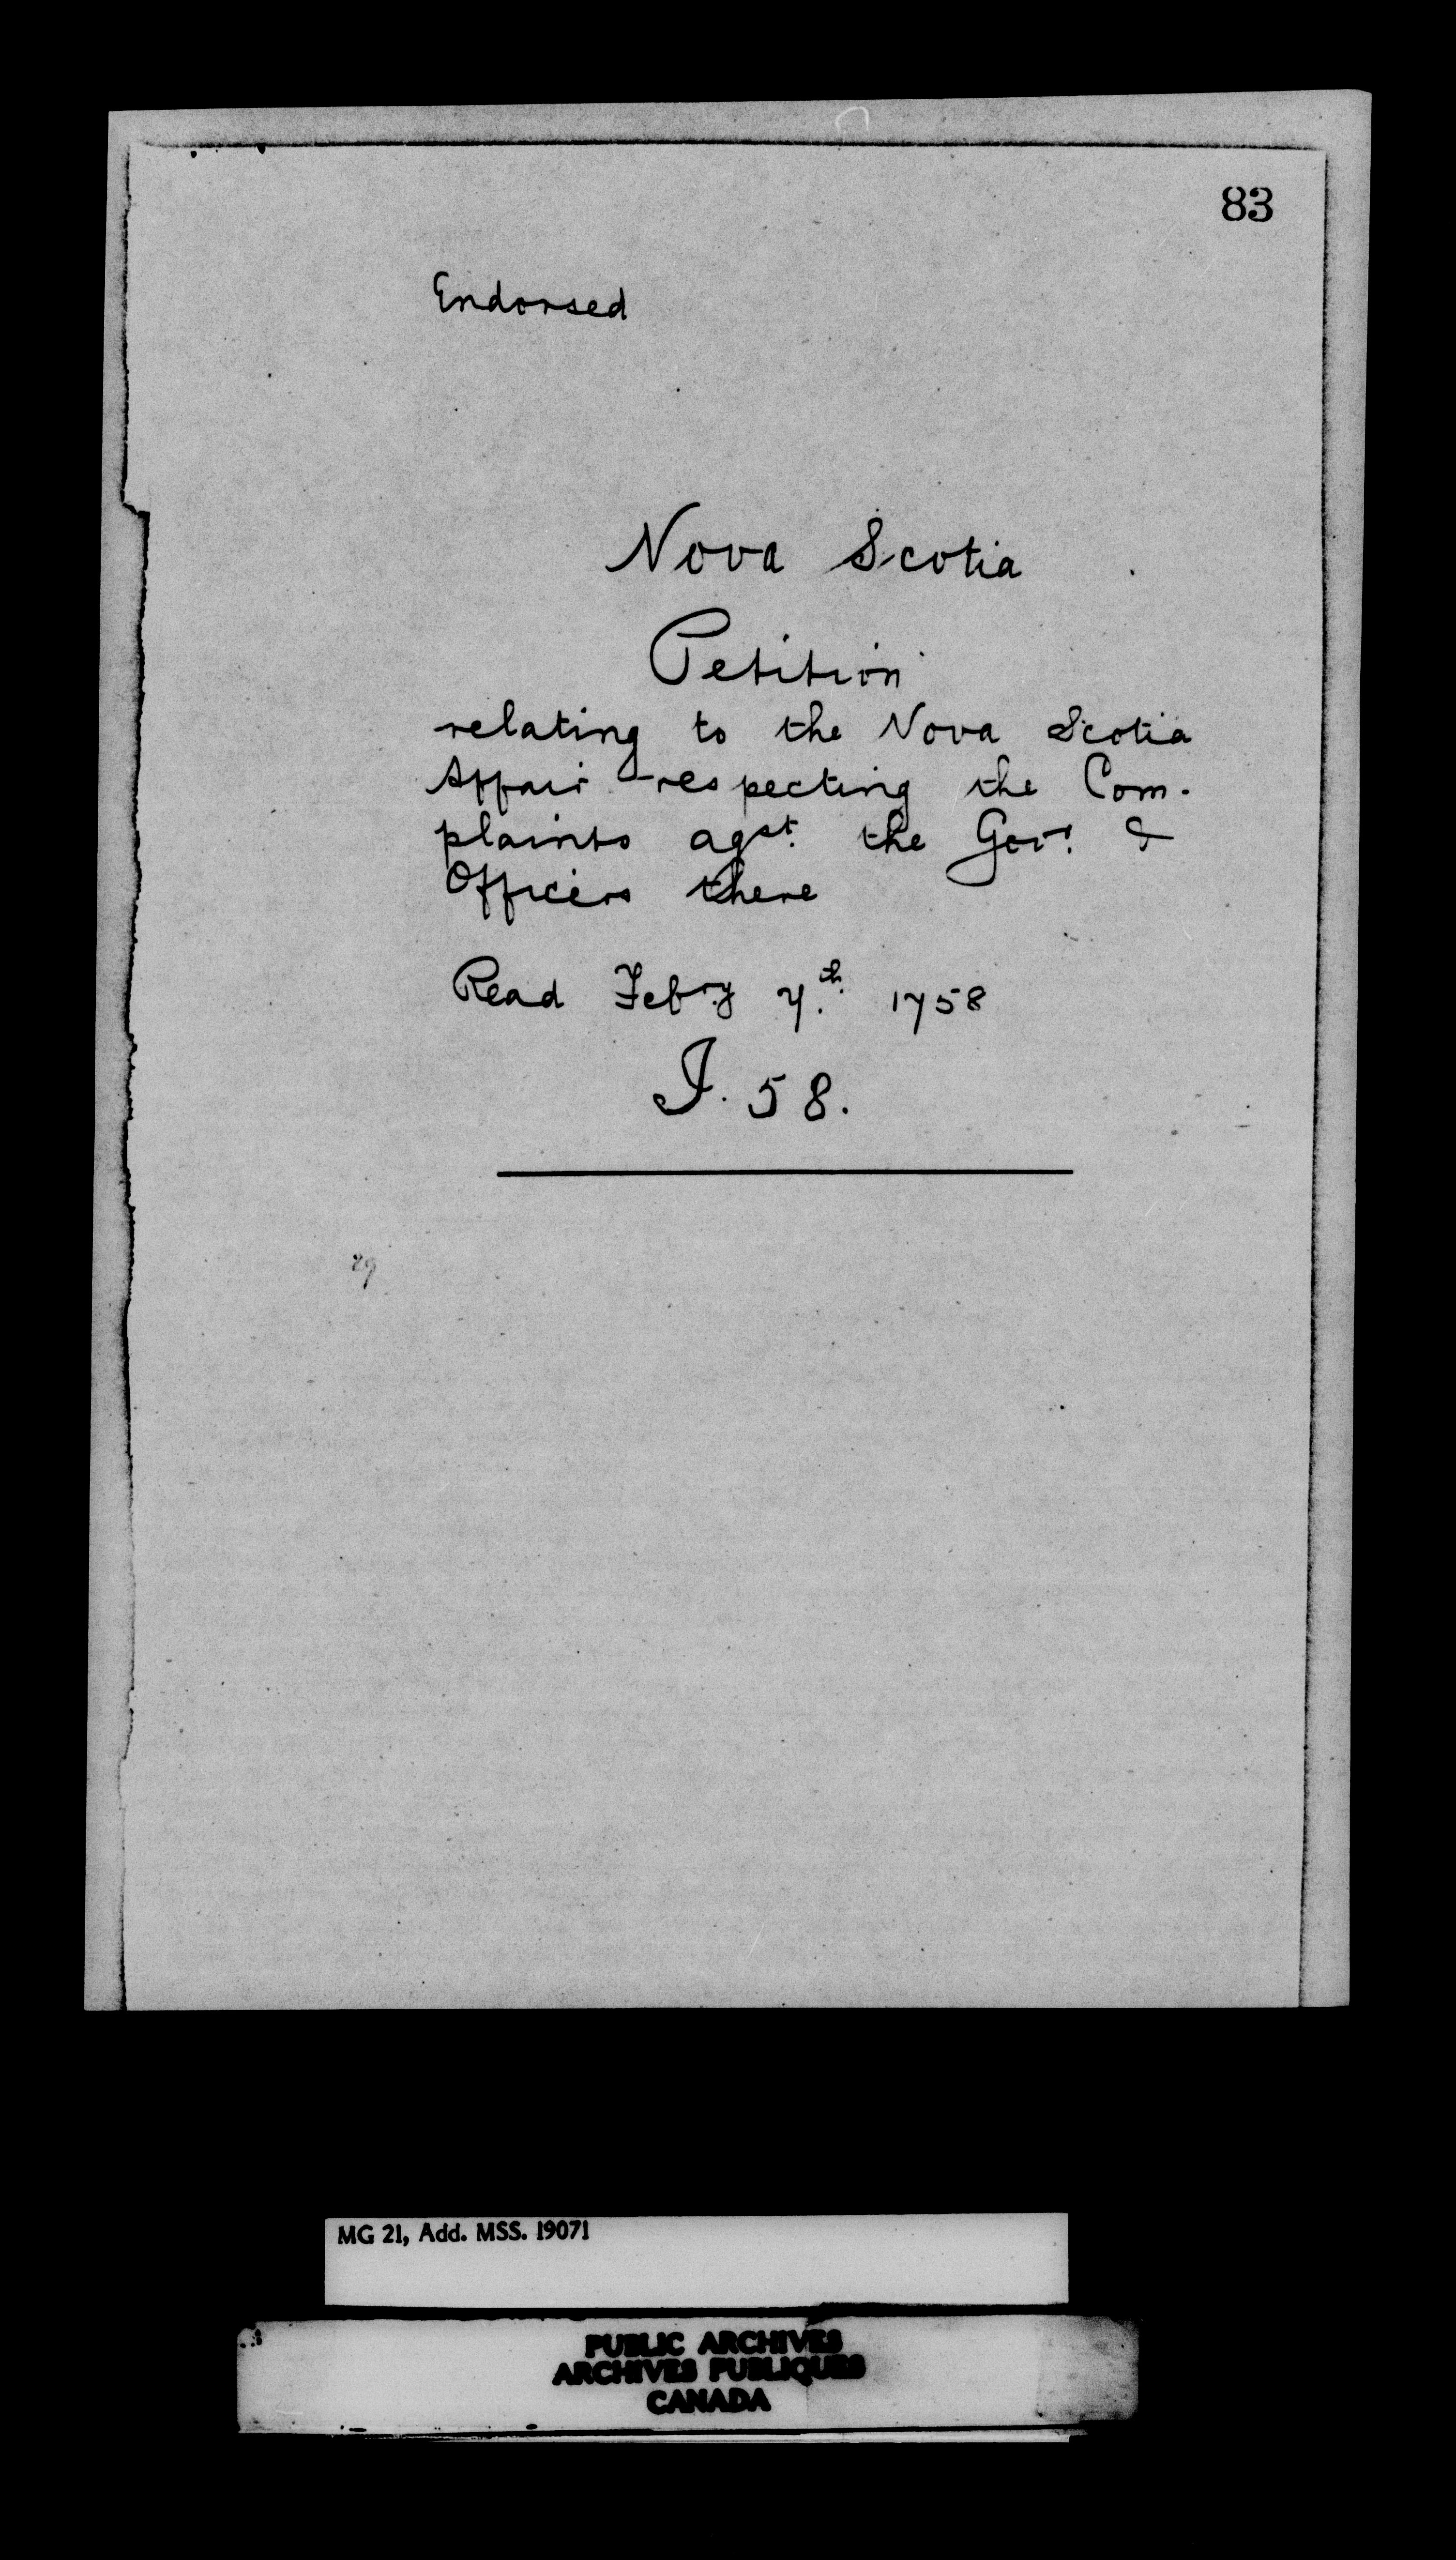 83
Endorsed
Nova Scotia
Petition
relating to the Nova Scotia
Affair respecting the Com-
plaints agst. the Govr. &
Officers there
Read Febry 7th. 1758
J. 58.
29
MG 21, Add. MSS. 19071
PUBLIC ARCHIVES
ARCHIVES PUBLIQUES
CANADA